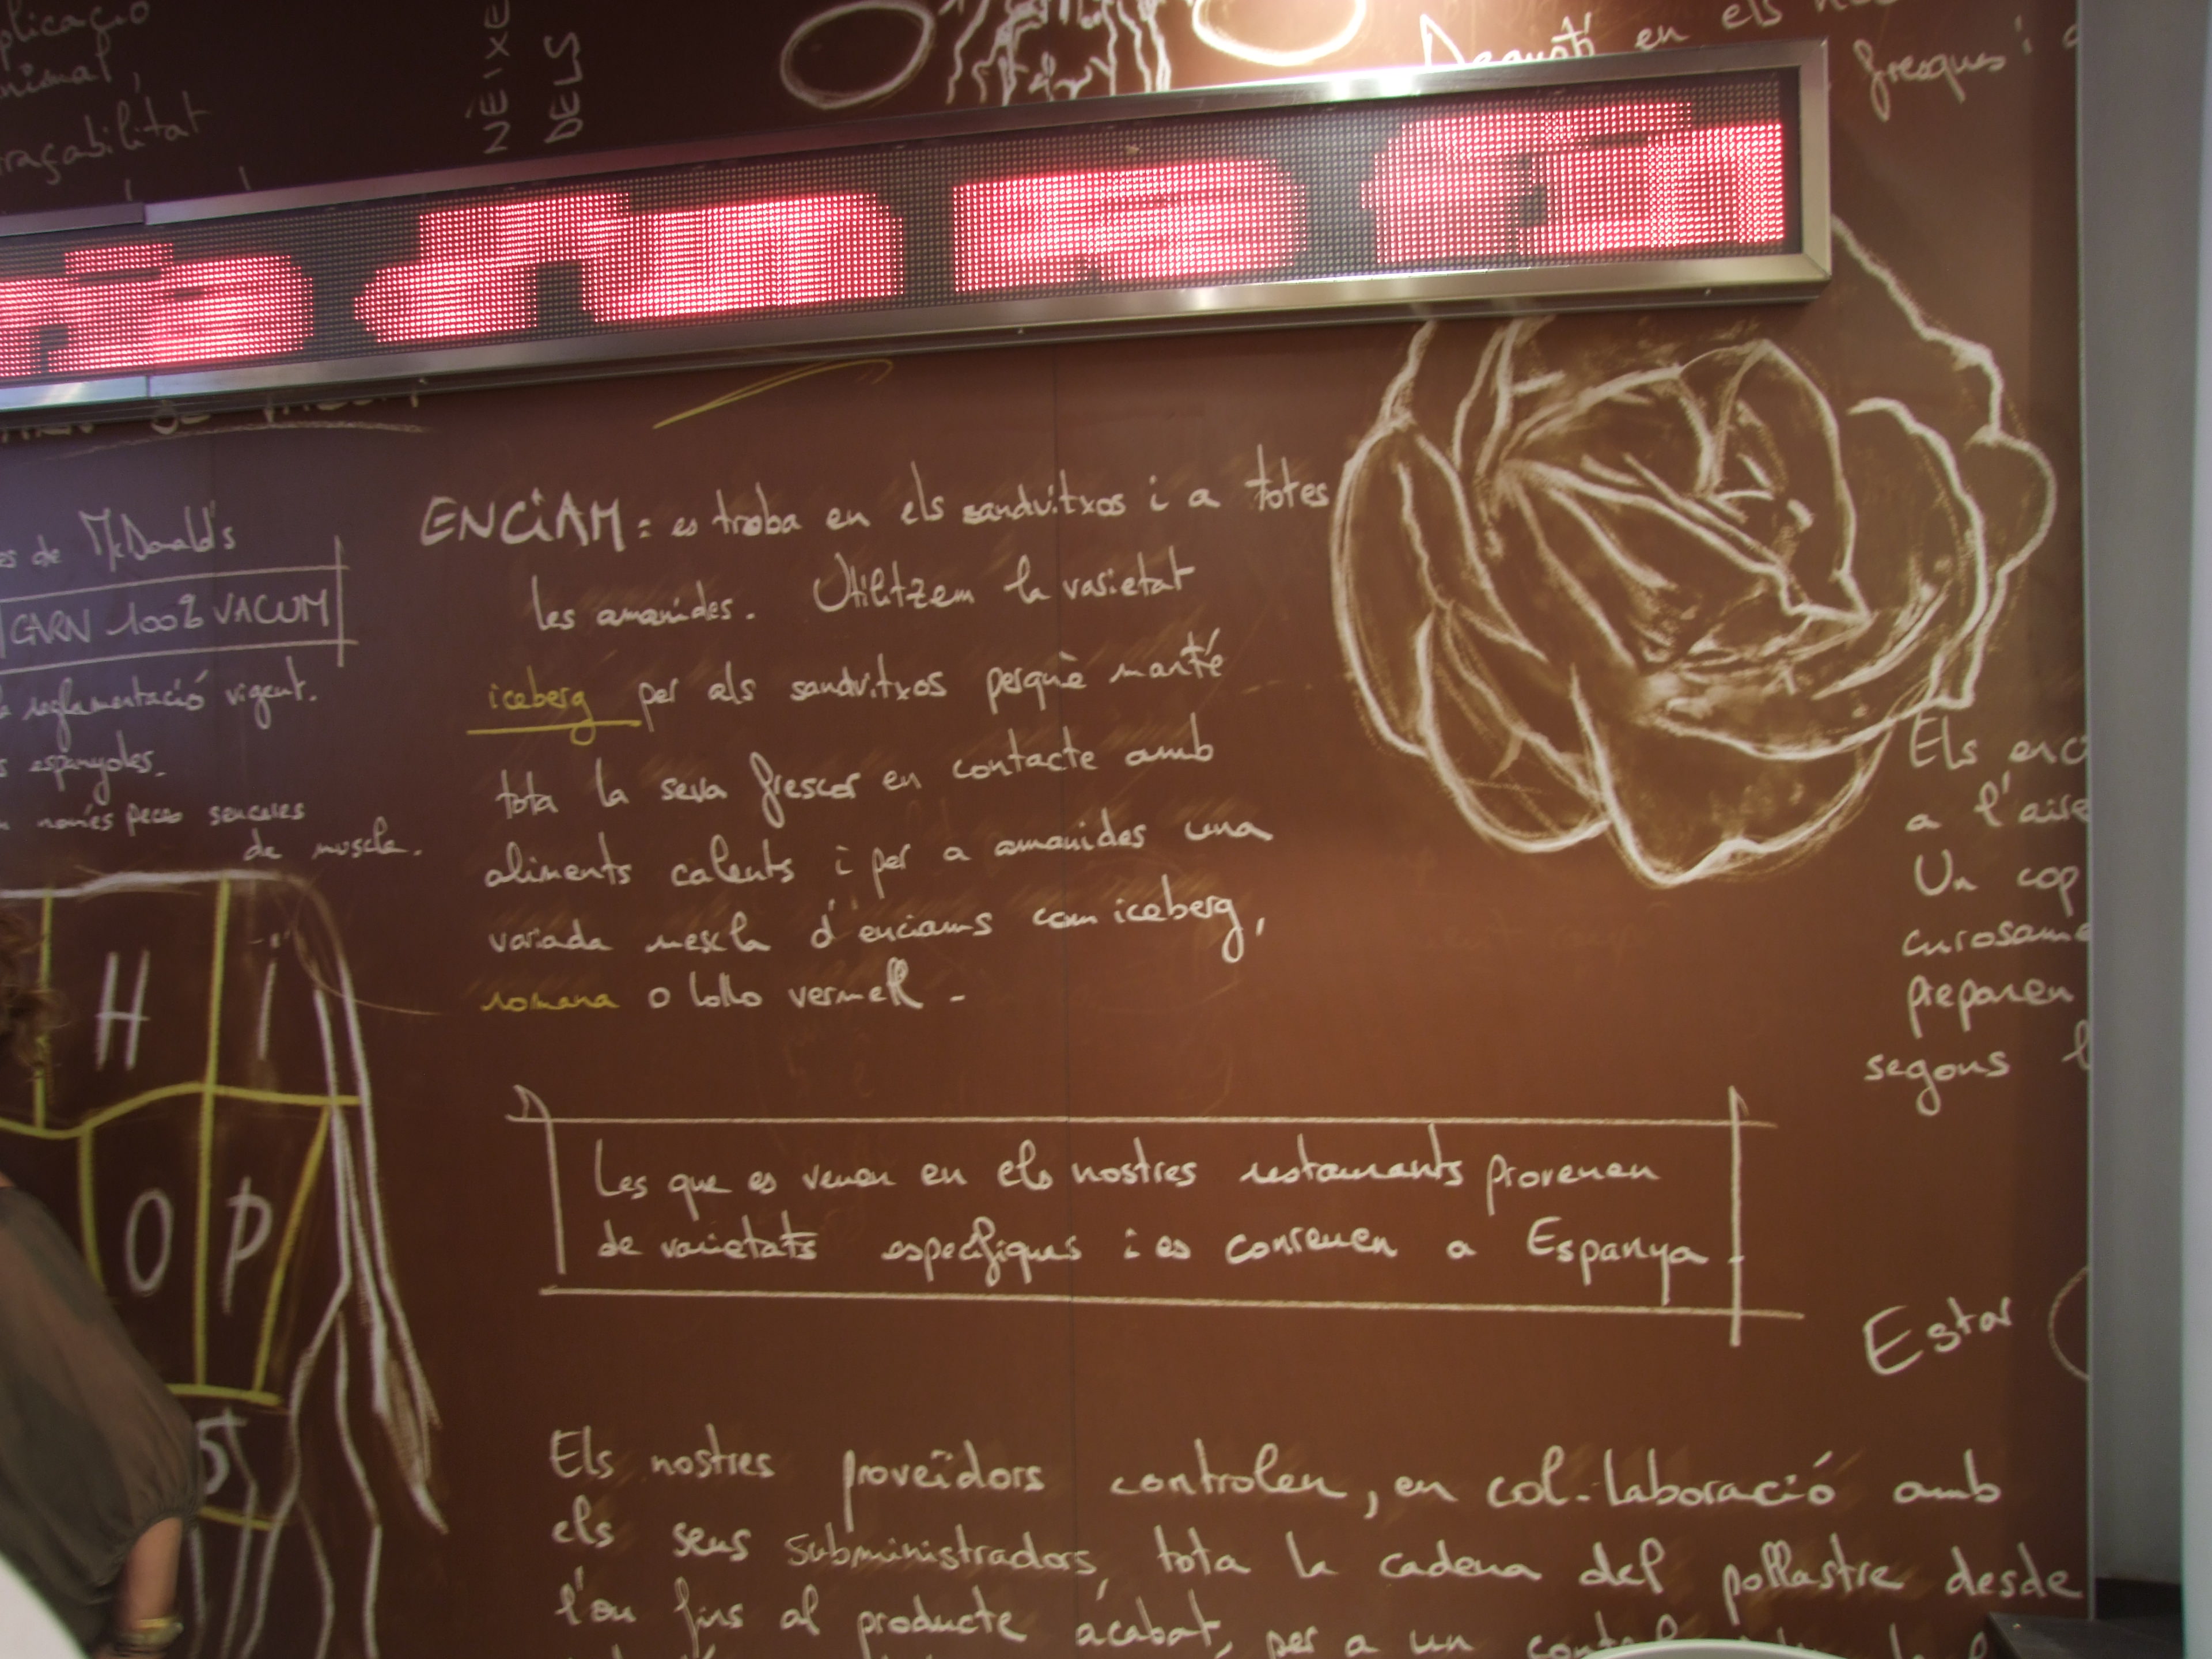 plicació
nimal,
traçabilitat
NEIXE
DELS
Degustí en els
fresques i
es de McDonald's
CARN 100% VACUM
reglamentació vigent.
s espanyoles.
només peces senceres
de muscle.
H
i
O
P
ENCIAM: es troba en els sandvitxos i a totes
les amanides. Utilitzem la varietat
iceberg per als sandvitxos perquè manté
tota la seva frescor en contacte amb
aliments calents i per a amanides una
variada mescla d'enciams com iceberg,
romana o lollo vermell.
Els enci
a l'aire
Un cop
curosame
preparen
segons l
Les que es venen en els nostres restaurants provenen
de varietats específiques i es conreuen a Espanya.
Estar
Els nostres proveïdors controlen, en col·laboració amb
els seus subministradors, tota la cadena del pollastre desde
l'ou fins al producte acabat, per a un